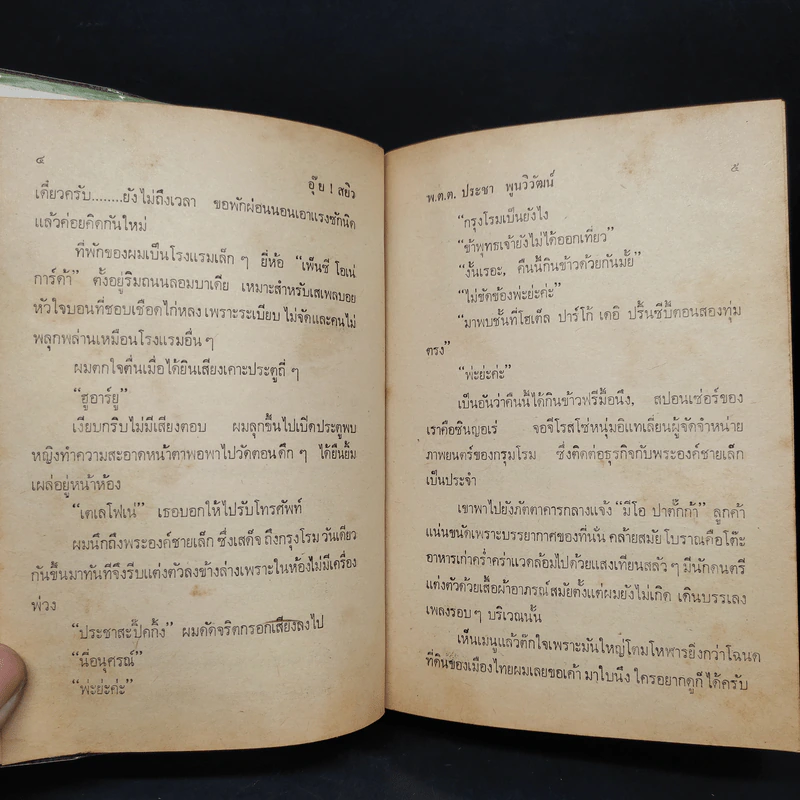 ๔
อุ๊ย ! สยิว
เดี๋ยวครับ........ยังไม่ถึงเวลา ขอพักผ่อนนอนเอาแรงซักนิด
แล้วค่อยคิดกันใหม่
ที่พักของผมเป็นโรงแรมเล็ก ๆ ยี่ห้อ “เพ็นซี โอเน่
การ์ด้า” ตั้งอยู่ริมถนนลอมบาเดีย เหมาะสำหรับเสเพลบอย
หัวใจบอนที่ชอบเชือดไก่หลง เพราะระเบียบ ไม่จัดและคนไม่
พลุกพล่านเหมือนโรงแรมอื่น ๆ
ผมตกใจตื่นเมื่อได้ยินเสียงเคาะประตูถี่ ๆ
“ฮูอาร์ยู”
เงียบกริบไม่มีเสียงตอบ ผมลุกขึ้นไปเปิดประตูพบ
หญิงทำความสะอาดหน้าตาพอพาไปวัดตอนดึก ๆ ได้ยืนยิ้ม
เผล่อยู่หน้าห้อง
“เตเลโฟเน่” เธอบอกให้ไปรับโทรศัพท์
ผมนึกถึงพระองค์ชายเล็ก ซึ่งเสด็จ ถึงกรุงโรม วันเดียว
กันขึ้นมาทันทีจึงรีบแต่งตัวลงข้างล่างเพราะในห้องไม่มีเครื่อง
พ่วง
“ประชาสะปี๊คกิ้ง” ผมดัดจริตกรอกเสียงลงไป
“นี่อนุศรณ์”
“พ่ะย่ะค่ะ”
พ.ต.ต. ประชา พูนวิวัฒน์
๕
“กรุงโรมเป็นยังไง
“ข้าพุทธเจ้ายังไม่ได้ออกเที่ยว”
“งั้นเรอะ, คืนนี้กินข้าวด้วยกันมั้ย”
“ไม่ขัดข้องพ่ะย่ะค่ะ”
“มาพบชั้นที่โฮเต็ล ปาร์โก้ เดอิ ปริ๊นซีปี้ตอนสองทุ่ม
ตรง”
“พ่ะย่ะค่ะ”
เป็นอันว่าคืนนี้ได้กินข้าวฟรีมื้อนึง, สปอนเซ่อร์ของ
เราคือซินญอเร่ จอจีโรสโซ่หนุ่มอิแทเลี่ยนผู้จัดจำหน่าย
ภาพยนตร์ของกรุมโรม ซึ่งติดต่อธุรกิจกับพระองค์ชายเล็ก
เป็นประจำ
เขาพาไปยังภัตตาคารกลางแจ้ง “มีโอ ปาตั๊กก้า” ลูกค้า
แน่นขนัดเพราะบรรยากาศของที่นั่น คล้ายสมัย โบราณคือโต๊ะ
อาหารเก่าคร่ำคร่าแวดล้อมไปด้วยแสงเทียนสลัว ๆ มีนักดนตรี
แต่งตัวด้วยเสื้อผ้าอาภรณ์สมัยตั้งแต่ผมยังไม่เกิด เดินบรรเลง
เพลงรอบ ๆ บริเวณนั้น
เห็นเมนูแล้วตกใจเพราะมันใหญ่โตมโหฬารยิ่งกว่าโฉนด
ที่ดินของเมืองไทยผมเลยขอเค้า มาใบนึง ใครอยากดูก็ ได้ครับ